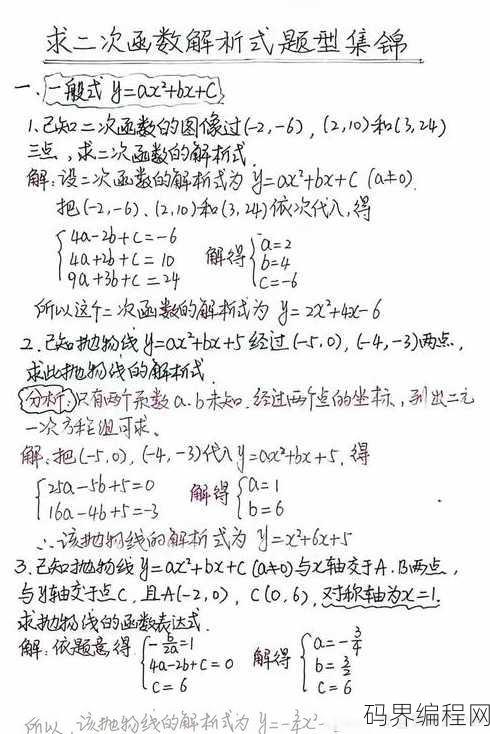 求二次函数解析式题型集锦
一、一般式 y=ax²+bx+c
1.已知二次函数的图像过(-2,-6),(2,10)和(3,24)
三点,求二次函数的解析式.
解:设二次函数的解析式为 y=ax²+bx+c (a≠0).
把(-2,-6)、(2,10)和(3,24)依次代入,得
{4a-2b+c=-6
4a+2b+c=10 解得 {a=2 b=4 c=-6
9a+3b+c=24
所以这个二次函数的解析式为 y=2x²+4x-6
2.已知抛物线y=ax²+bx+5经过(-5,0),(-4,-3)两点,
求此抛物线的解析式.
分析:只有两个系数a.b未知.经过两个点的坐标,列出二元
一次方程组可求.
解:把(-5,0),(-4,-3)代入y=ax²+bx+5,得
{25a-5b+5=0 解得 {a=1
16a-4b+5=-3 b=6
∴该抛物线的解析式为 y=x²+6x+5
3.已知抛物线y=ax²+bx+c(a≠0)与x轴交于A.B两点,
与y轴交于点C,且A(-2,0),C(0,6),对称轴为x=1.
求抛物线的函数表达式.
解:依题意得 {-b/2a=1 解得 {a=-3/4
4a-2b+c=0 b=3/2
c=6 c=6
所以,该抛物线的解析式为 y=-3/4x²-
码界编程网